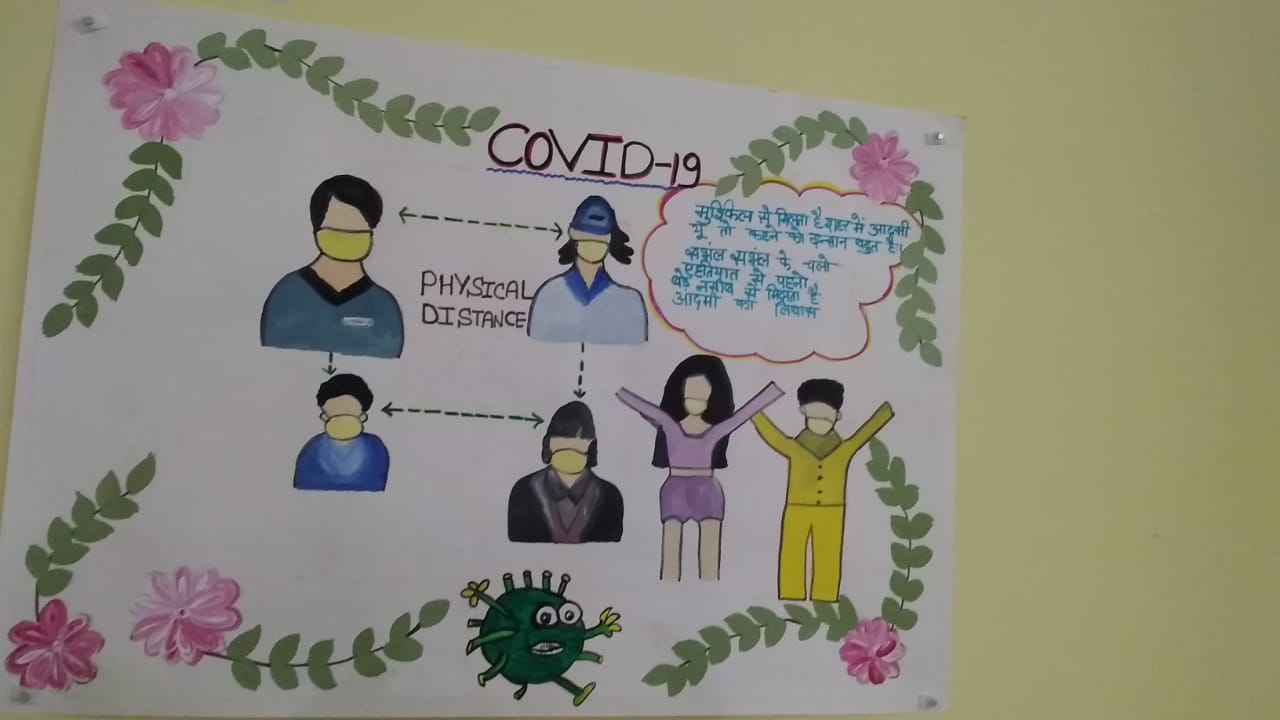 COVID-19
PHYSICAL
DISTANCE
मुश्किल से मिलता है शहर में आदमी
यूं तो कहने को इन्सान बहुत है।
सभंल सभंल के चलो
एहतियात से पहनो
बड़े नसीब से मिलता है
आदमी का लिबास